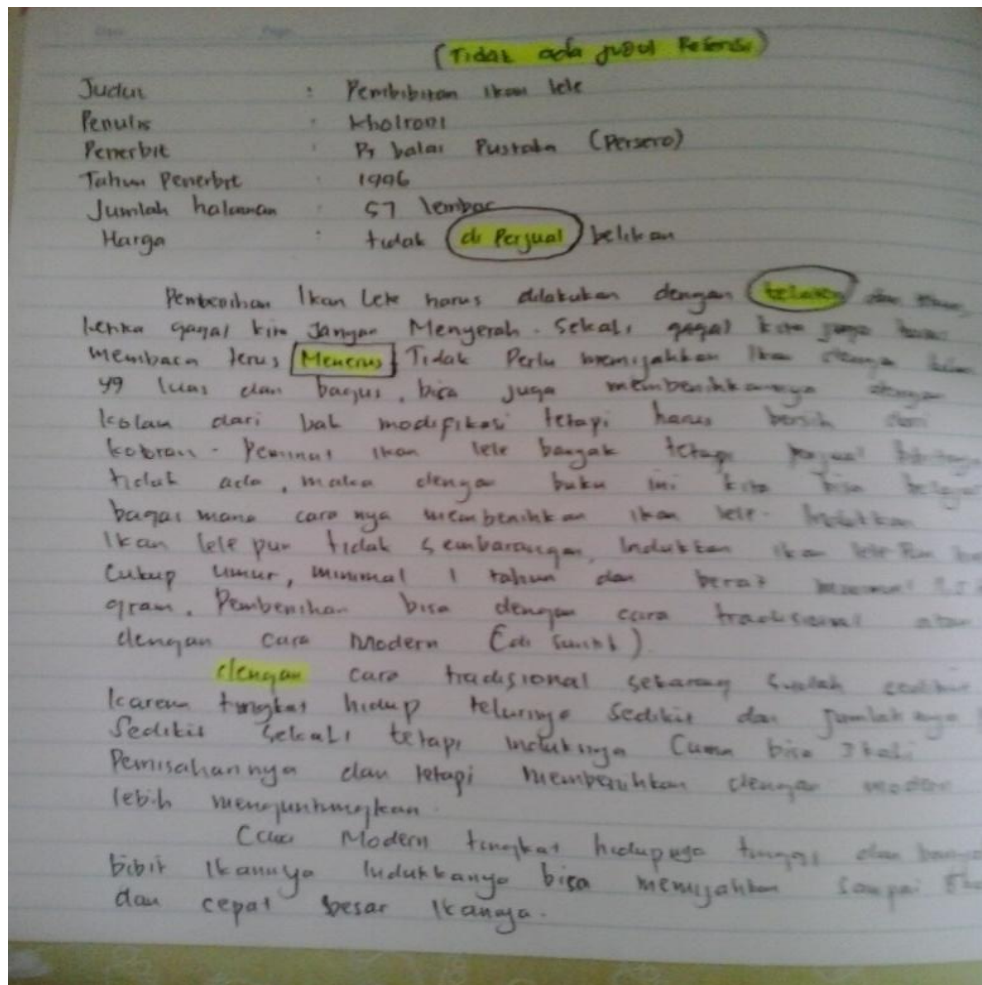 (Tidak ada judul Resensi)
Judul : Pembibitan ikan lele
Penulis : Kholroni
Penerbit : Pt balai Pustaka (Persero)
Tahun Penerbit : 1996
Jumlah halaman : 57 lembar
Harga : tidak di Perjual belikan
Pembenihan Ikan Lele harus dilakukan dengan telaten dan
ketika gagal kita Jangan Menyerah. Sekali gagal kita juga harus
membaca terus Menerus Tidak Perlu memijahkan Ikan
yg luas dan bagus, bisa juga membenihkannya dengan
kolam dari bak modifikasi tetapi harus bersih dari
kotoran. Peminat ikan lele banyak tetapi
tidak ada, maka dengan buku ini kita bisa belajar
bagai mana cara nya membenihkan ikan lele. Indukkan
Ikan lele pun tidak sembarangan, Indukkan ikan lele Pun
Cukup umur, minimal 1 tahun dan berat
gram. Pembenihan bisa dengan cara tradisional atau
dengan cara Modern (di Suntik).
dengan cara tradisional sekarang Sudah
karena tingkat hidup telurnya Sedikit dan Jumlahnya
Sedikit Sekali tetapi induknya Cuma bisa 3 kali
Pemisahannya dan tetapi membenihkan dengan modern
lebih menguntungkan.
Cara Modern tingkat hidupnya tinggi dan
bibit Ikannya Indukkanya bisa memijahkan Sampai
dan cepat besar Ikannya.